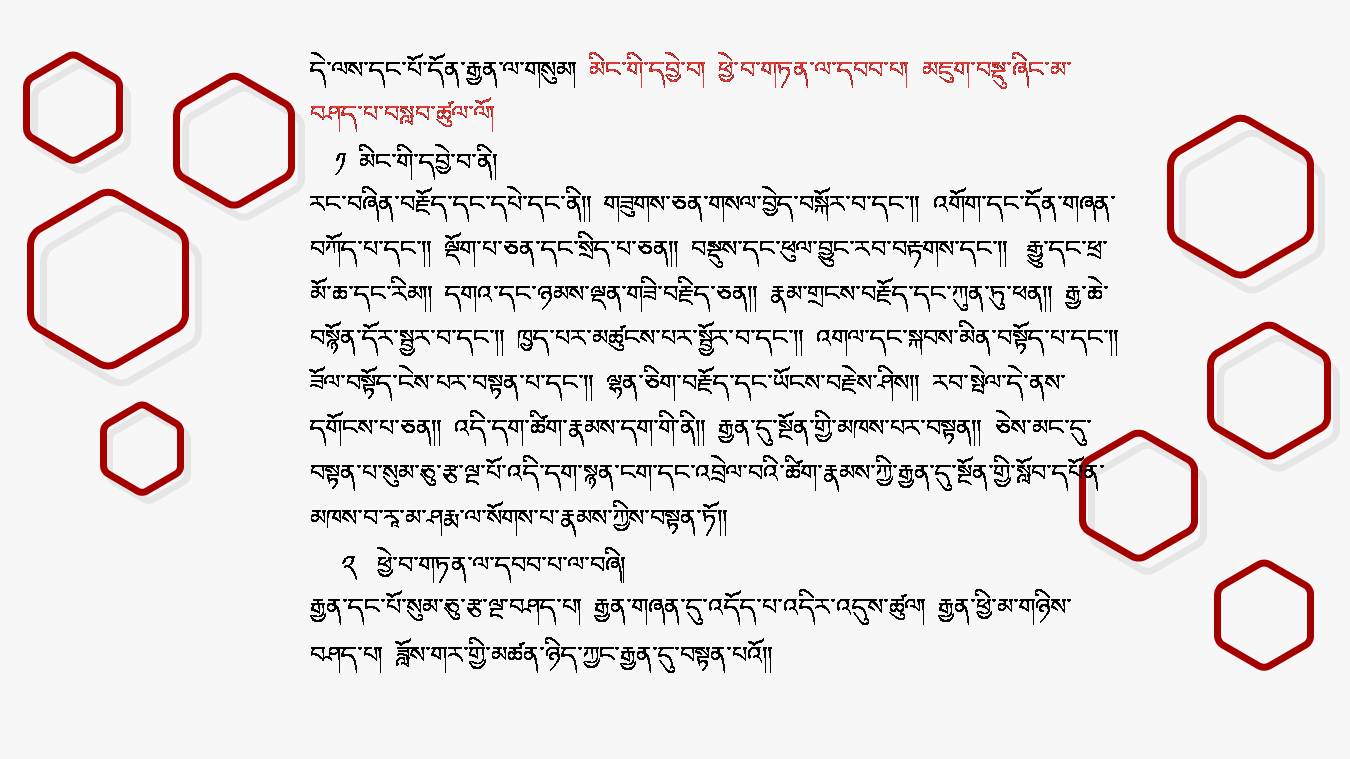 དེ་ལས་དང་པོ་དོན་རྒྱན་ལ་གསུམ། མིང་གི་དབྱེ་བ། ཕྱེ་བ་གཏན་ལ་དབབ་པ། མཇུག་བསྡུ་ཞིང་མ་
བཤད་པ་བསླབ་ཚུལ་ལོ།
༡ མིང་གི་དབྱེ་བ་ནི།
རང་བཞིན་བརྗོད་དང་དཔེ་དང་ནི།། གཟུགས་ཅན་གསལ་བྱེད་བསྐོར་བ་དང་།། འགོག་དང་དོན་གཞན་
བཀོད་པ་དང་།། ལྡོག་པ་ཅན་དང་སྲིད་པ་ཅན།། བསྡུས་དང་ཕུལ་བྱུང་རབ་བརྟགས་དང་།། རྒྱུ་དང་ཕྲ་
མོ་ཆ་དང་རིམ།། དགའ་དང་ཉམས་ལྡན་གཟི་བརྗིད་ཅན།། རྣམ་གྲངས་བརྗོད་དང་ཀུན་ཏུ་ཕན།། རྒྱ་ཆེ་
བསྙོན་དོར་སྦྱར་བ་དང་།། ཁྱད་པར་མཚུངས་པར་སྦྱོར་བ་དང་།། འགལ་དང་སྐབས་མིན་བསྟོད་པ་དང་།།
ཟོལ་བསྟོད་ངེས་པར་བསྟན་པ་དང་།། ལྷན་ཅིག་བརྗོད་དང་ཡོངས་བརྗེས་ཤིས།། རབ་སྤེལ་དེ་ནས་
དགོངས་པ་ཅན།། འདི་དག་ཚིག་རྣམས་དག་གི་ནི།། རྒྱན་དུ་སྔོན་གྱི་མཁས་པར་བསྟན།། ཅེས་མང་དུ་
བསྟན་པ་སུམ་ཅུ་རྩ་ལྔ་པོ་འདི་དག་སྙན་ངག་དང་འབྲེལ་བའི་ཚིག་རྣམས་ཀྱི་རྒྱན་དུ་སྔོན་གྱི་སློབ་དཔོན་
མཁས་པ་རཱ་མ་ཤརྨ་ལ་སོགས་པ་རྣམས་ཀྱིས་བསྟན་ཏོ།།
༢ ཕྱེ་བ་གཏན་ལ་དབབ་པ་ལ་བཞི།
རྒྱན་དང་པོ་སུམ་ཅུ་རྩ་ལྔ་བཤད་པ། རྒྱན་གཞན་དུ་འདོད་པ་འདིར་འདུས་ཚུལ། རྒྱན་ཕྱི་མ་གཉིས་
བཤད་པ། ཟློས་གར་གྱི་མཚན་ཉིད་ཀྱང་རྒྱན་དུ་བསྟན་པའོ།།